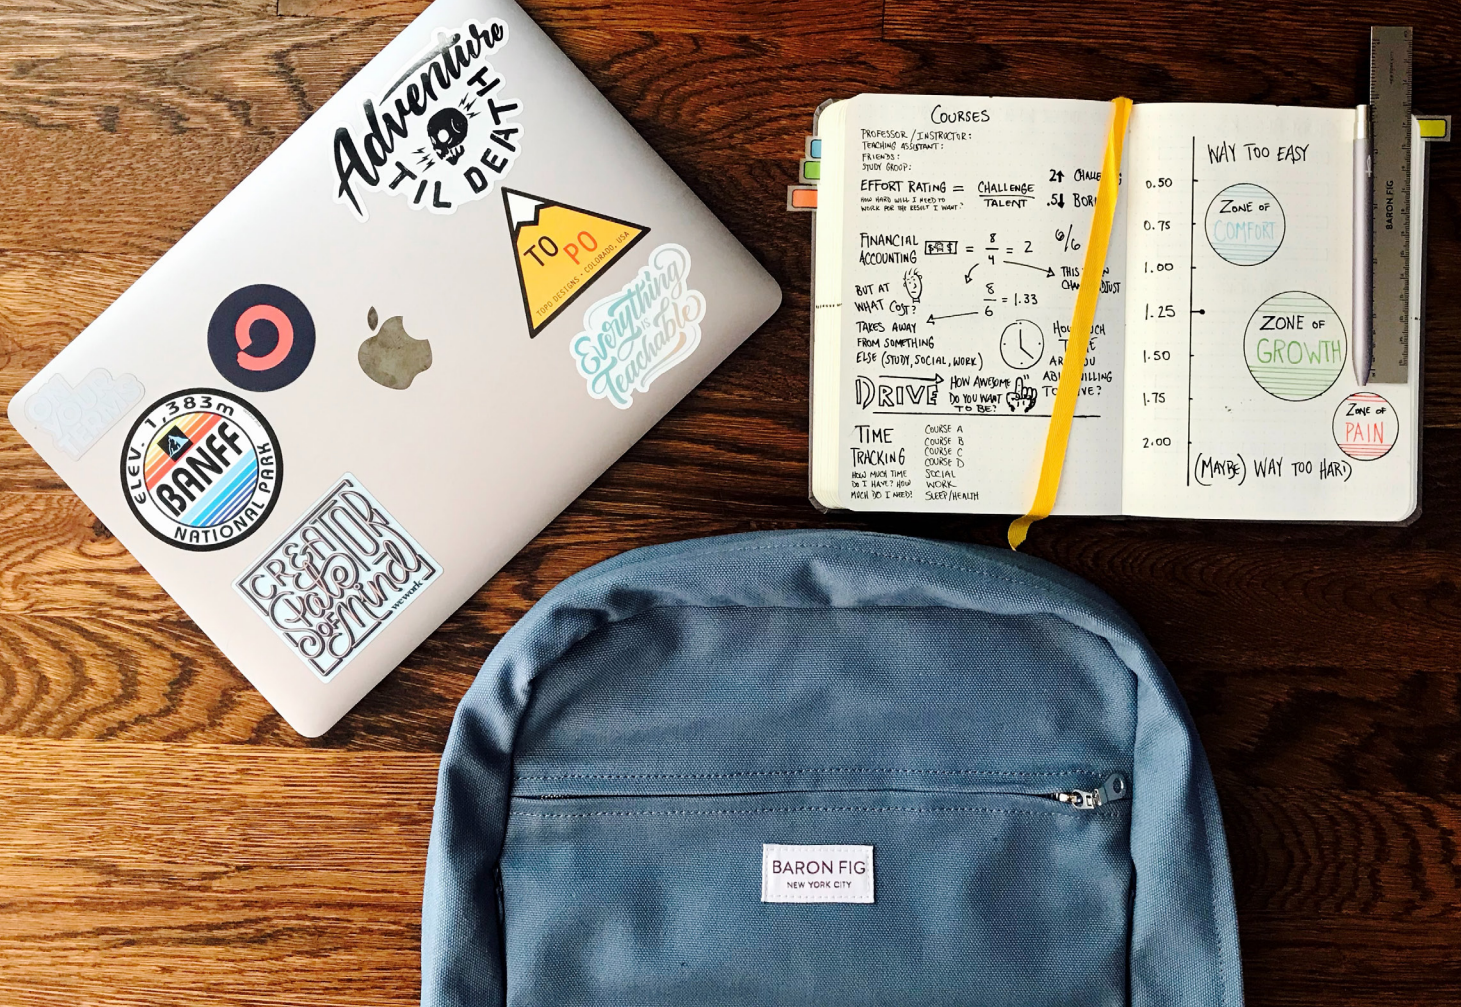 Adventure
'TIL DEATH
TO
PO
TOPO DESIGNS • COLORADO, USA
Everything
is
Teachable
ELEV. 1,383m
BANFF
NATIONAL PARK
CREATOR
State
OF
Mind
wework
COURSES
PROFESSOR / INSTRUCTOR:
TEACHING ASSISTANT:
FRIENDS:
STUDY GROUP:
EFFORT RATING = CHALLENGE
TALENT
HOW HARD WILL I NEED TO
WORK FOR THE RESULT I WANT?
2↑
.5↓
FINANCIAL
ACCOUNTING
$
= 8
4
= 2
6/6
BUT AT
WHAT COST?
8
6
= 1.33
THIS
TAKES AWAY
FROM SOMETHING
ELSE (STUDY, SOCIAL, WORK)
DRIVE
HOW AWESOME
DO YOU WANT
TO BE?
TIME
TRACKING
HOW MUCH TIME
DO I HAVE? HOW
MUCH DO I NEED?
COURSE A
COURSE B
COURSE C
COURSE D
SOCIAL
WORK
SLEEP/HEALTH
WAY TOO EASY
0.50
0.75
1.00
1.25
1.50
1.75
2.00
ZONE OF
COMFORT
ZONE OF
GROWTH
ZONE OF
PAIN
(MAYBE) WAY TOO HARD
BARON FIG
BARON FIG
NEW YORK CITY